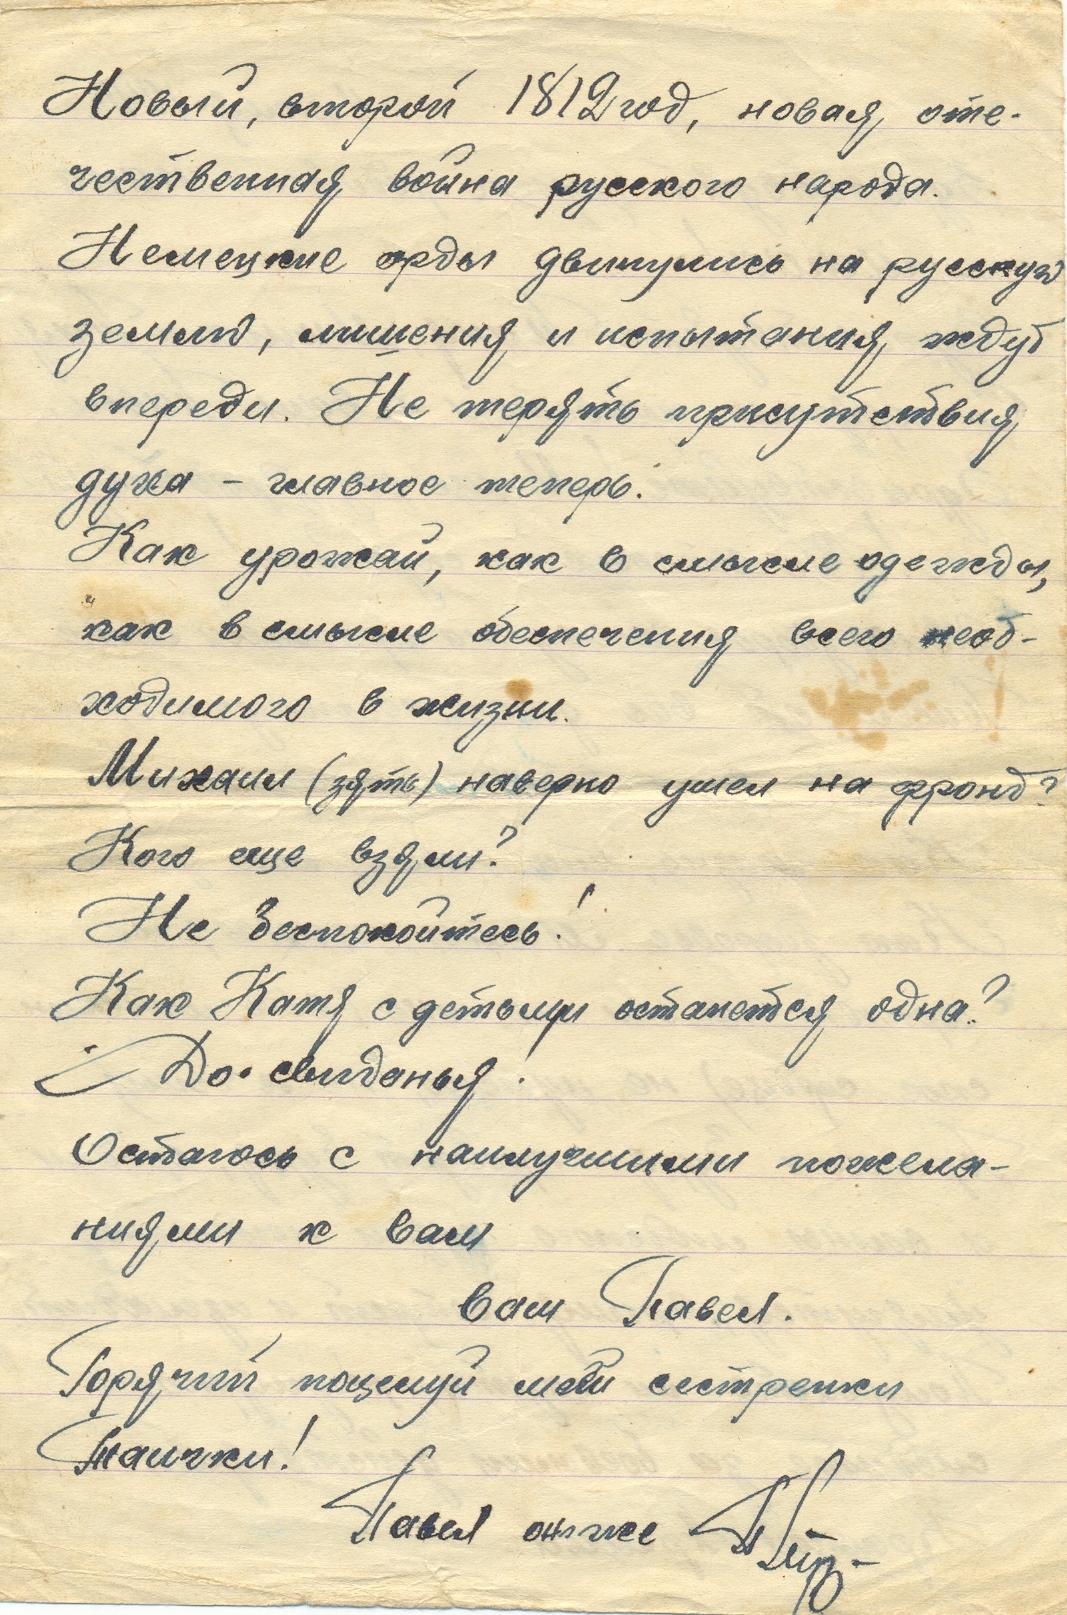 Новый, второй 1812 год, новая оте-
чественная война русского народа.
Немецкие орды двинулись на русскую
землю, лишения и испытания ждут
впереди. Не терять присутствия
духа – главное теперь.
Как урожай, как в смысле одежды,
как в смысле обеспечения всего необ-
ходимого в жизни.
Михаил (зять) наверно ушел на фронд?
Кого еще взяли?
Не беспокойтесь!
Как Катя с детьми останется одна?
До свиданья!
Остаюсь с наилучшими пожела-
ниями к вам
ваш Павел.
Горячий поцелуй моей сестренки
Таички!
Павел он же